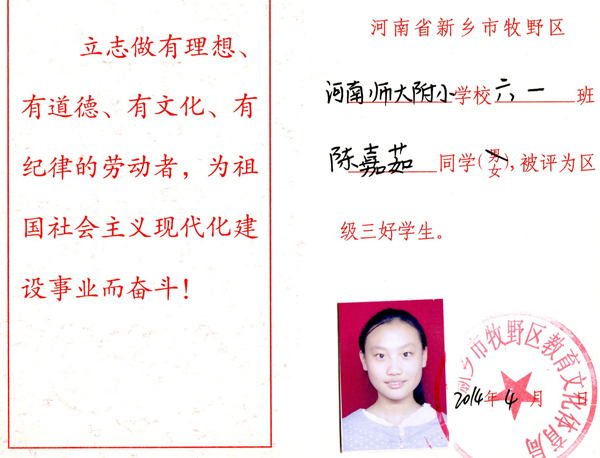 立志做有理想、
有道德、有文化、有
纪律的劳动者，为祖
国社会主义现代化建
设事业而奋斗！
河南省新乡市牧野区
河南师大附小学校六、一班
陈嘉茹同学(男女)，被评为区
级三好学生。
新乡市牧野区教育文化体育局
2014年4月 日